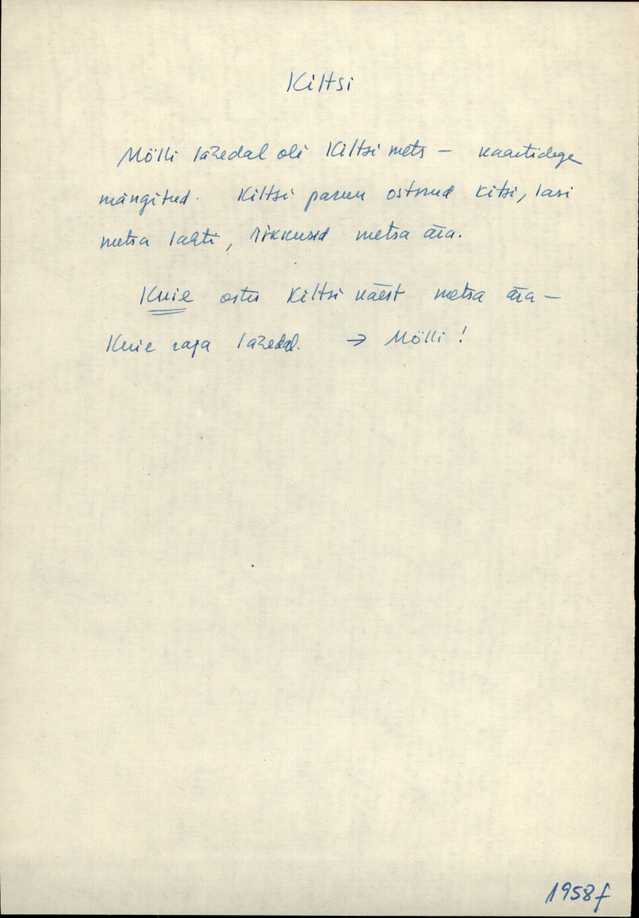 Kiltsi
Mölli lähedal oli Kiltsi mets – kaartidega
mängitud. Kiltsi parun ostnud kitsi, lasi
metsa lahti, rikkusid metsa ära.
Kuie ostis Kiltsi käest metsa ära –
Kuie raja lähedal. → Mölli!
1958 f